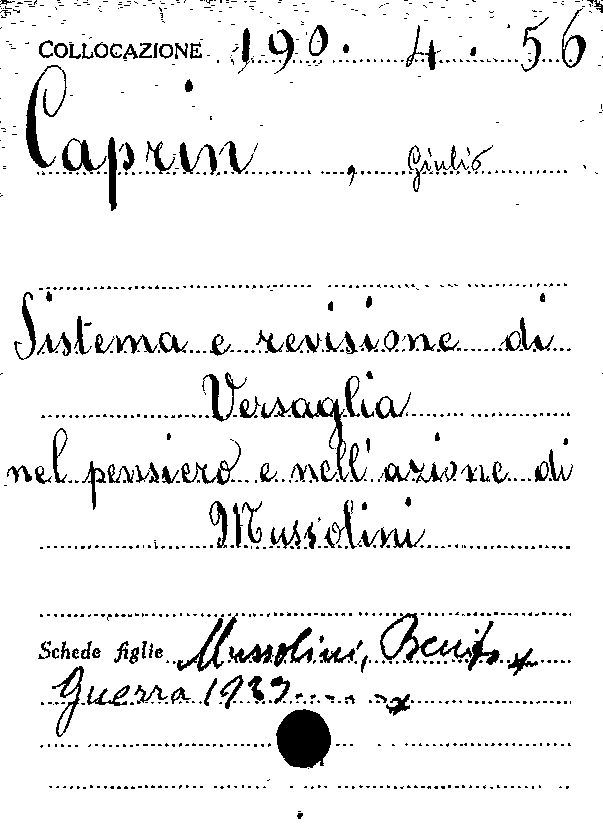 COLLOCAZIONE 190. 4. 56
Caprin, Giulio
Sistema e revisione di
Versaglia
nel pensiero e nell'azione di
Mussolini
Schede figlie Mussolini, Benito x
Guerra 1939-.... -x